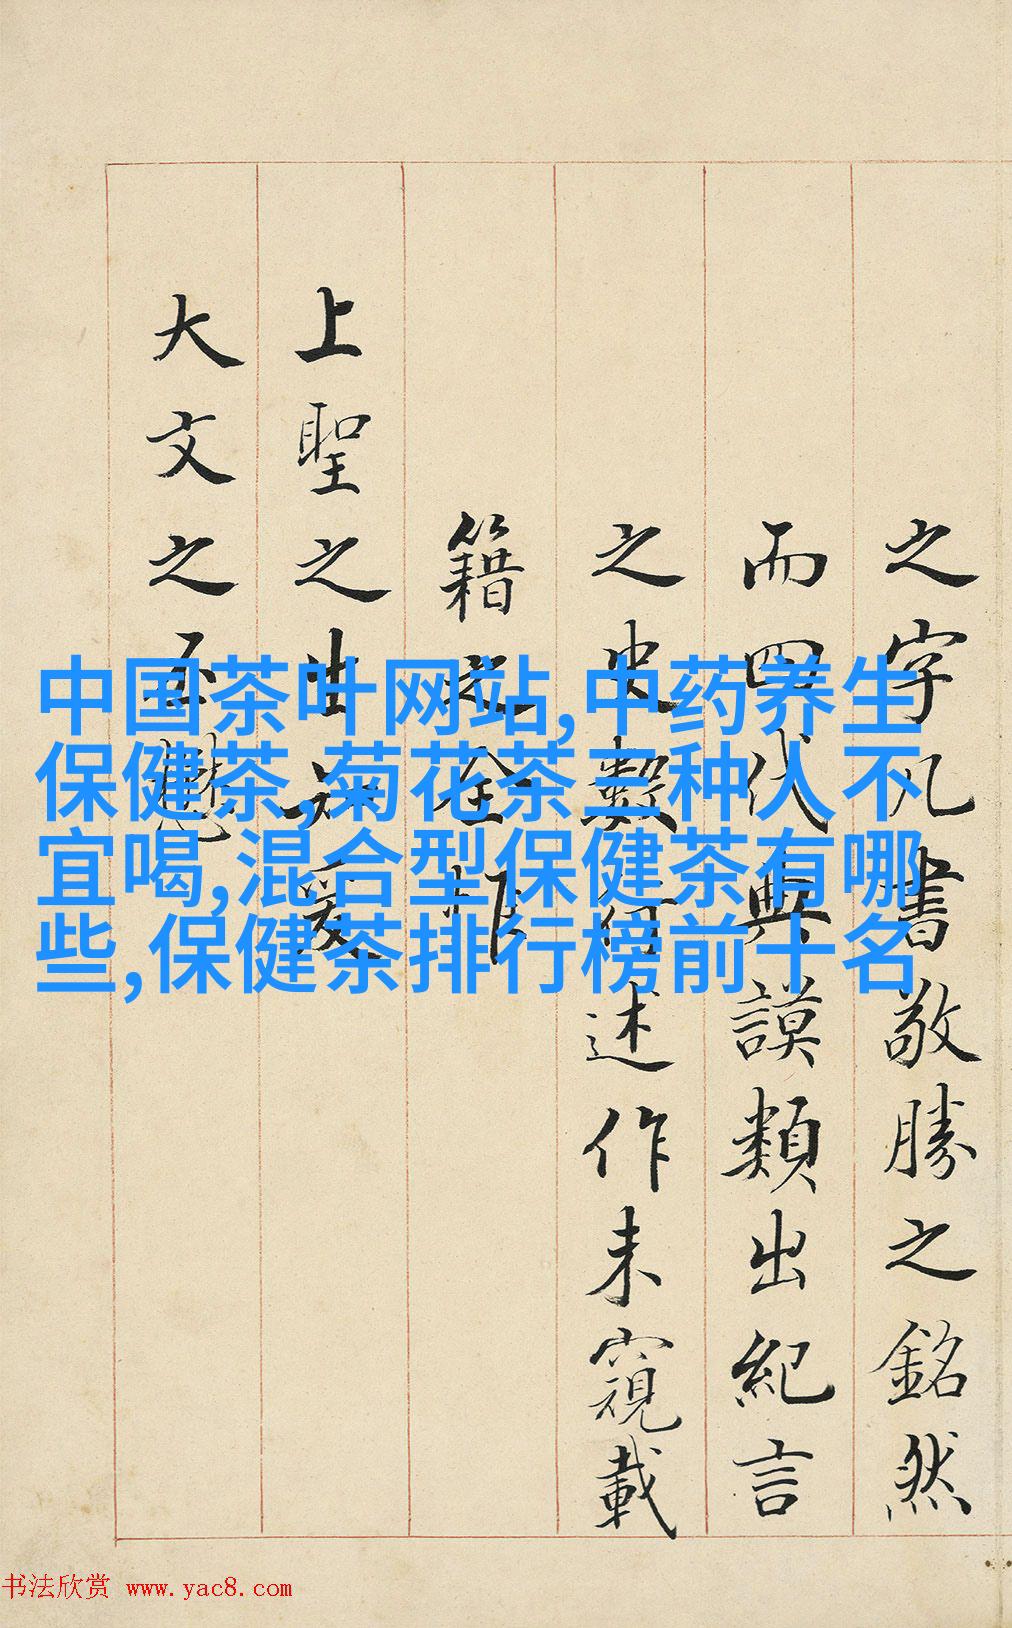 之字几書敬勝之銘然
而四代典謨類出紀言
之史數述作未窺載
籍
上聖之出
大文之
中国茶叶网站,中药养生
保健茶,菊花茶三种人不
宜喝,混合型保健茶有哪
些,保健茶排行榜前十名
书法欣赏 www.yac8.com